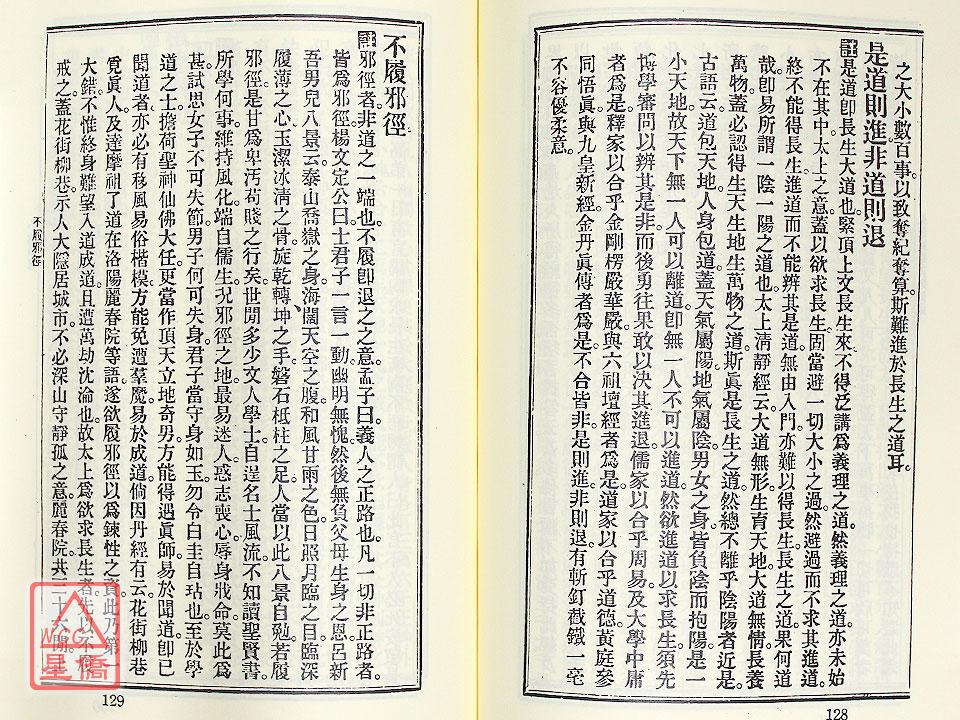 之大小數百事。以致奪紀奪算。斯難進於長生之道耳。
是道則進非道則退
註是道卽長生大道也。緊頂上文長生來。不得泛講爲義理之道。然義理之道。亦未始
不在其中。太上之意。蓋以欲求長生。固當避一切大小之過。然避過而不求其進道。
終不能得長生。進道而不能辨其是道。無由入門。亦難以得長生。長生之道果何道
哉。卽易所謂一陰一陽之道也。太上清靜經云。大道無形。生育天地。大道無情。長養
萬物。蓋必認得生天生地生萬物之道。斯眞是長生之道。然總不離乎陰陽者近是。
古語云。道包天地。人身包道。蓋天氣屬陽。地氣屬陰。男女之身。皆負陰而抱陽。是一
小天地。故天下無一人可以離道。卽無一人不可以進道。然欲進道以求長生。須先
博學審問。以辨其是非。而後勇往果敢。以決其進退。儒家以合乎周易。及大學中庸
者爲是。釋家以合乎金剛楞嚴華嚴。與六祖壇經者爲是。道家以合乎道德黃庭參
同悟眞。與九皇新經金丹眞傳者爲是。不合皆非。是則進。非則退。有斬釘截鐵一毫
不容優柔意。
128
不履邪徑
註邪徑者。非道之一端也。不履卽退之之意。孟子曰。義人之正路也。凡一切非正路者。
皆爲邪徑。楊文定公曰。士君子一言一動。幽明無愧。然後無負父母生身之恩。呂新
吾男兒八景云。泰山喬嶽之身。海闊天空之腹。和風甘雨之色。日照月臨之目。臨深
履薄之心。玉潔冰清之骨。旋乾轉坤之手。磐石柢柱之足。人當以此八景自勉。若履
邪徑。是甘爲卑汚苟賤之行矣。世間多少文人學士。自逞名士風流。不知讀聖賢書。
所學何事。維持風化。端自儒生。況邪徑之地。最易迷人。惑志喪心。辱身戕命。莫此爲
甚。試思女子不可失節。男子何可失身。君子當守身如玉。勿令白圭自玷也。至於學
道之士。擔荷聖神仙佛大任。更當作頂天立地奇男。方能得遇眞師。易於聞道。卽已
聞道者。亦必有移風易俗楷模。方能免遭羣魔。易於成道。倘因丹經有云。花街柳巷
覓眞人。及達摩祖了道在洛陽麗春院等語。遂欲履邪徑以爲鍊性之資。此乃第一
大錯。不惟終身難望入道成道。且遭萬劫沈淪也。故太上爲欲求長生者。先以不
戒之。蓋花街柳巷。示人大隱居城市。不必深山守靜孤之意。麗春院共三十六間。
不履邪徑
129
星僑
WCG